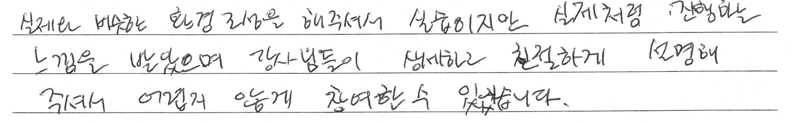 실제와 비슷한 환경 조성을 해주셔서 실습이지만 실제처럼 진행하는
느낌을 받았으며 강사님들이 상세하고 친절하게 설명해
주셔서 어렵지 않게 참여할 수 있었습니다.